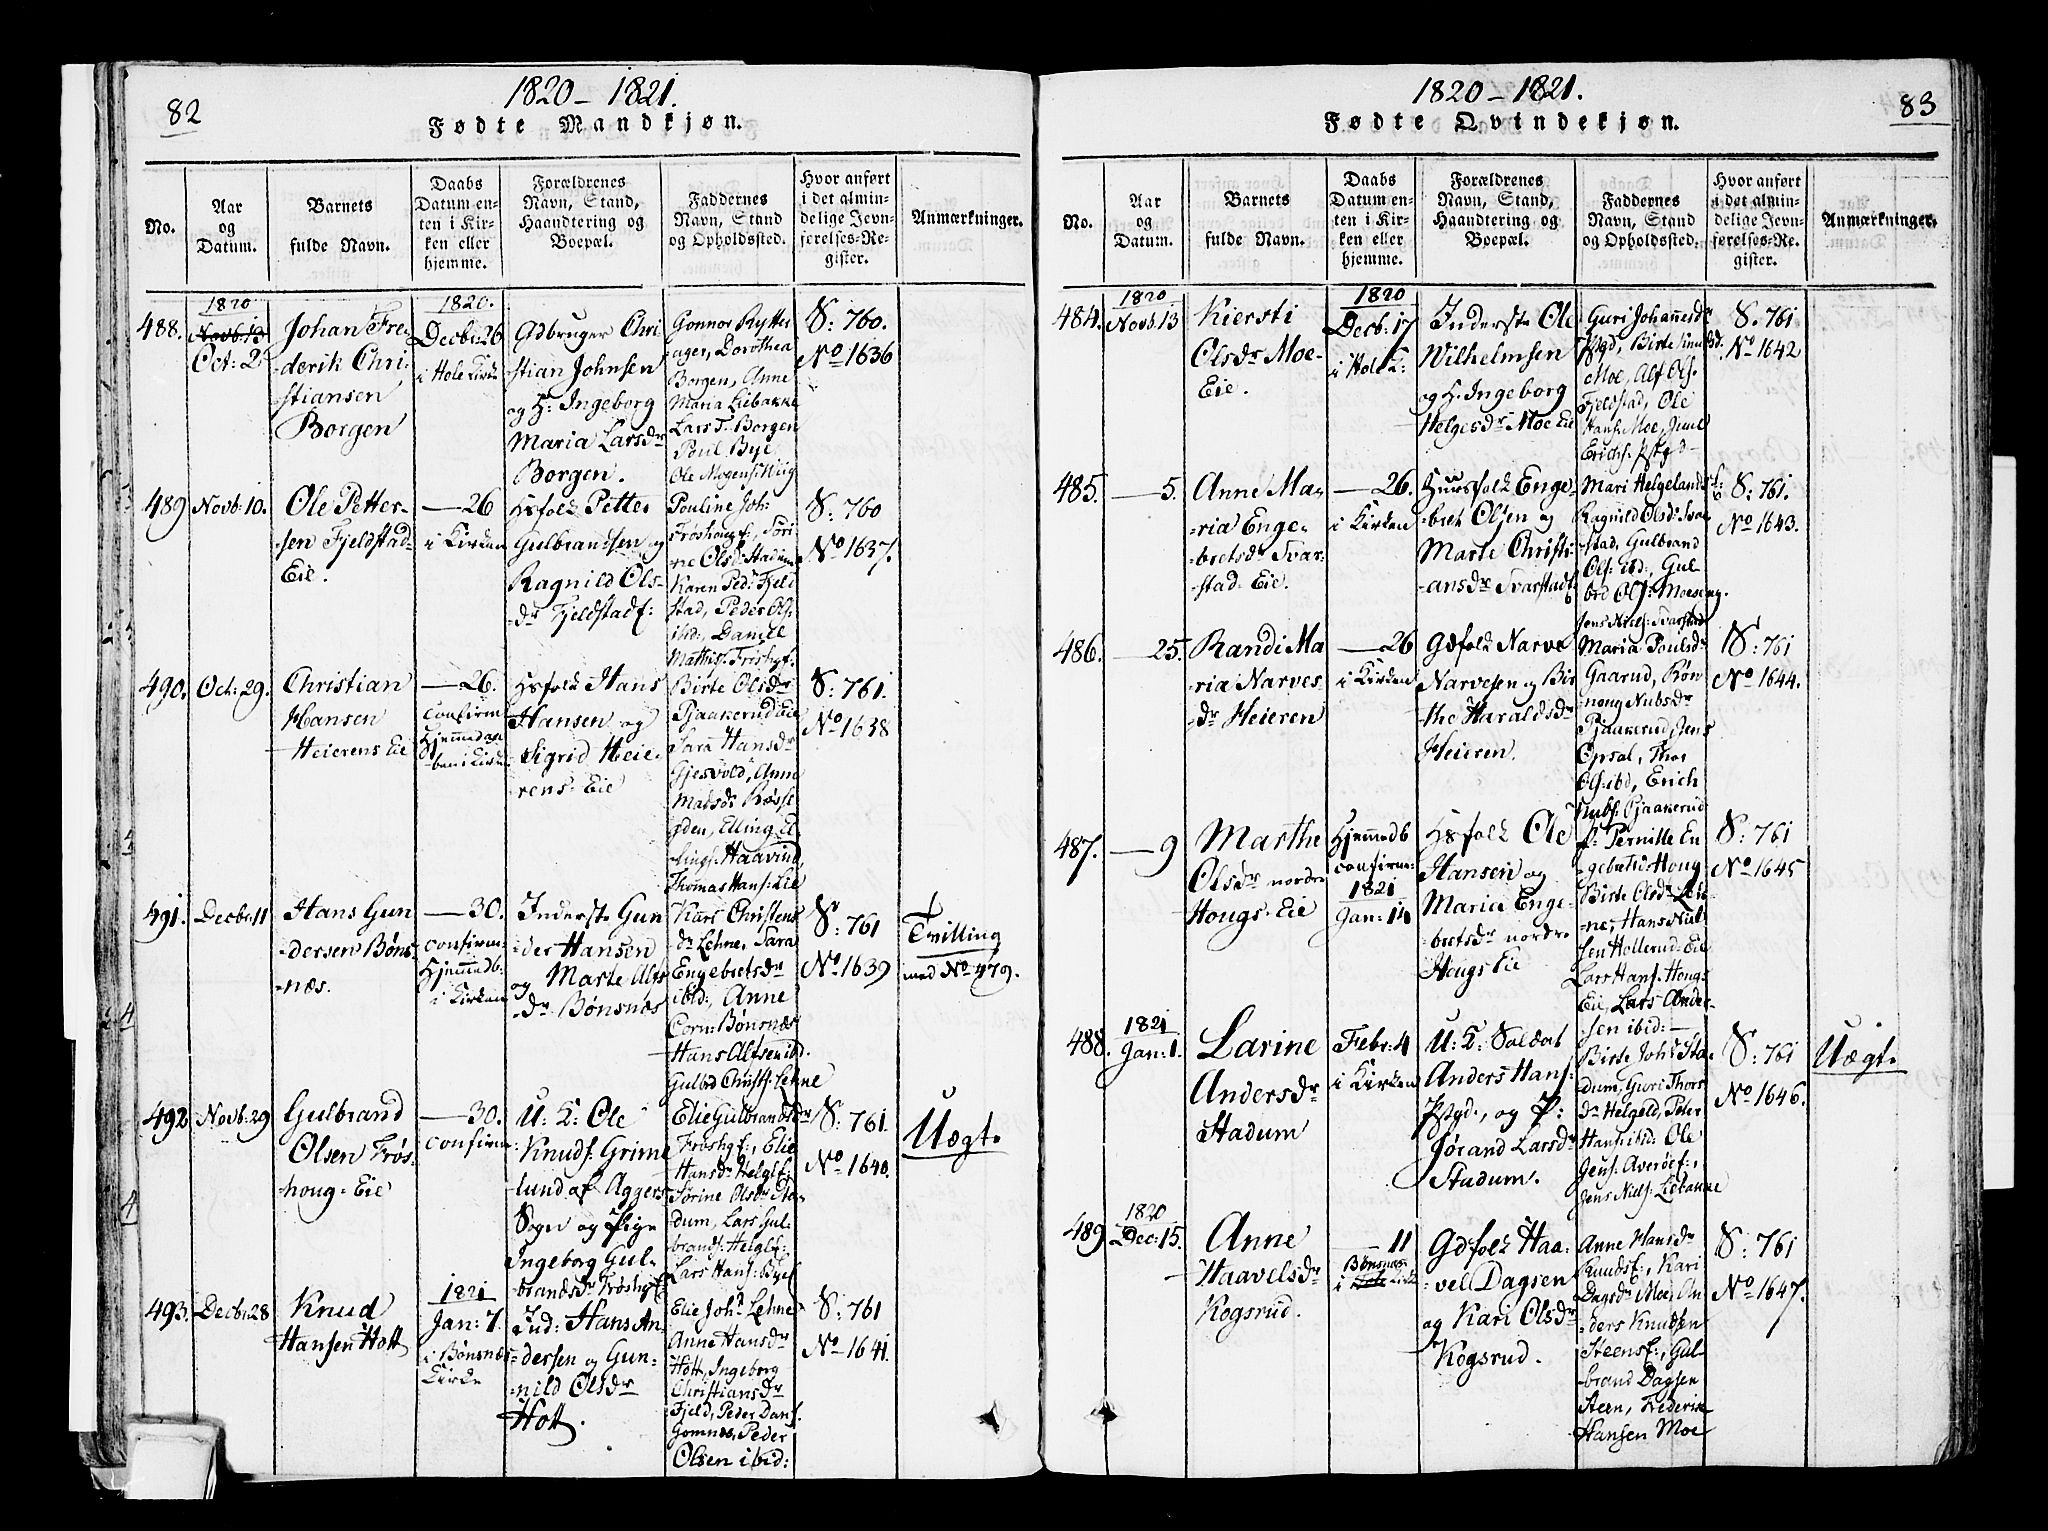 82
1820 – 1821.
Fødte Mandkjøn.
No.
Aar
og
Datum.
Barnets
fulde Navn.
Daabs
Datum en-
ten i Kir-
ken eller
hjemme.
Forældrenes
Navn, Stand,
Haandtering og
Boepæl.
Faddernes
Navn, Stand
og Opholdssted.
Hvor anført
i det almin-
delige Jevn-
førelses-Re-
gister.
Anmærkninger.
488.
1820
Novb: 13
Oct: 2
Johan Fre-
derik Chri-
stiansen
Borgen
1820.
Decbr: 26
i Hole Kirke
Gdbruger Chri
stian Johnsen
og H: Ingeborg
Maria Larsdr
Borgen.
Gonnor Rytter
ager, Dorothea
Borgen, Anne
Maria Liebakke
Lars T. Borgen
Poul Bye
Ole Mogens:
S: 760.
No 1636
489
Novb: 10.
Ole Petter-
sen Fjeldstad-
Eie.
— 26
i Kirken
Hsfolk Petter
Gulbrandsen og
Ragnild Ols-
dr Fjeldstadf:
Pouline Joh:
Frøshougf:, Søri
ne Olsd: Stadum
Karen Pedr: Fjeld
stad, Peder Ols:
ibid:, Daniel
Mathis:
S: 760
No 1637.
490.
Oct: 29.
Christian
Hansen
Heierens Eie
— 26.
confirm
Hjemmedaa
ben i Kirke
Hsfolk Hans
Hansen og
Sigrid Heie-
rens: Eie
Birte Olsdr
Pjaakerud Eie
Sara Hansdr
Gjesvold, Anne
Madsdr Røsse
gden, Elling El
lings: Haavind,
Thomas Hans: Lie
S: 761.
No 1638
491.
Decbr: 11
Hans Gun
dersen Bøns-
næs.
— 30.
confirm:
Hjemmedb:
i Kirken
Inderste Gun
der Hansen
og Marte Alfs
dr Bønsnæs
Kari Christens
dr Lehne, Sara
Engebretsdr
ibid:, Anne
Corn: Bønsnæs
Hans Alfsen ibd.
Gulbd Christhs: Lehne
S: 761
No 1639
Tvilling
med No 479.
492
Novb: 29
Gulbrand
Olsen Frøs-
houg- Eie
— 30.
confirm:
U: K: Ole
Knuds: Grime
lund af Aggers
Sogn og Pige
Ingeborg Gul-
brandsdr Frøshgf:
Elie Gulbrandsdr
Frøshgf:, Elie
Hansdr Helglf:
Sørine Olsdr Sta-
dum, Lars Gul-
brands: Helglf:
Lars Hans: Byef
S: 761.
No 1640.
Uægt.
493.
Decbr: 28
Knud
Hansen Hott
1821
Jan: 7.
i Bønsnæs
Kirke
Ind: Hans An-
dersen og Gun-
nild Olsdr
Hott.
Elie Johs: Lehne
Anne Hansdr
Hott, Ingeborg
Christiansdr
Fjeld, Peder Dans:
Gomnes, Peder
Olsen ibid:
S: 761
No 1641.
83
1820 – 1821.
Fødte Qvindekjøn.
No.
Aar
og
Datum.
Barnets
fulde Navn.
Daabs
Datum en-
ten i Kir-
ken eller
hjemme.
Forældrenes
Navn, Stand,
Haandtering og
Boepæl.
Faddernes
Navn, Stand
og Opholdssted.
Hvor anført
i det almin-
delige Jevn-
førelses-Re-
gister.
Anmærkninger.
484.
1820
Novb: 13
Kiersti
Olsdr Moe-
Eie.
1820
Decb: 17
i Hole K:
Inderste Ole
Wilhelmsen
og H. Ingeborg
Helgesdr Moe Eie
Guri Johannesdr
Pstgd, Birte
Moe, Alf Ols.
Fjeldstad, Ole
Hans: Moe,
Erichs: Pstgd
S. 761
No 1642
485.
— 5.
Anne Ma-
ria Enge-
bretsdr Svar-
stad. Eie.
— 26.
i Kirken
Huusfolk Enge-
bret Olsen og
Marte Christi-
ansdr Svarstadf:
Mari Helgelandsf:
Ragnild Olsdr Svar
stad, Gulbrand
Ols: ibd:, Gul
brd Ols: Moeseng.
Jens Niels: Svarstad
S: 761.
No 1643.
486.
— 25.
Randi Ma
ria Narves
dr Heieren
— 26
i Kirken
Gdfolk Narve
Narvesen og Bir
the Haraldsdr
Heieren.
Maria Poulsdr
Gaarud, Røn
noug Nubsdr
Pjaakerud, Jens
Opsal, Thor
Ols: ibd, Erich
Nubs: Pjaakerud
S: 761
No 1644.
487.
— 9
Marthe
Olsdr nordre
Hougs- Eie
Hjemmedb
confirm:
1821
Jan: 14
Hsfolk Ole
Hansen og
Maria Enge-
bretsdr nordre
Hougs Eie
Pernille En
gebrets: Houg
Birte Olsdr Leh-
ne, Hans Nub-
sen Hollerud: Eie
Lars Hans: Hougs
Eie, Lars Ander-
sen ibid: —
S: 761
No 1645
488.
1821
Jan: 1.
Larine
Andersdr
Stadum
Febr: 4
i Kirken
U: K: Soldat
Anders Hans:
Pstgd., og P:
Jørand Larsdr
Stadum.
Birte Johs: Sta-
dum, Guri Thors
dr Helgeld, Peter
Hans: ibid: Ole
Jens: Averøef:,
Jens Niels: Liebakke
S: 761
No 1646.
Uægt.
489
1820
Dec: 15.
Anne
Haavelsdr
Kogsrud.
— 11
Bønsnæs
i Hole Kirke
Gdfolk Haa-
vel Dagsen
og Kari Olsdr
Kogsrud.
Anne Hansdr
Knudsf:, Kari
Dagsdr Moe, An
ders Knudsen
Steensf:, Gul-
brand Dagsen
Steen, Frederik
Hansen Moe
S: 761
No 1647.